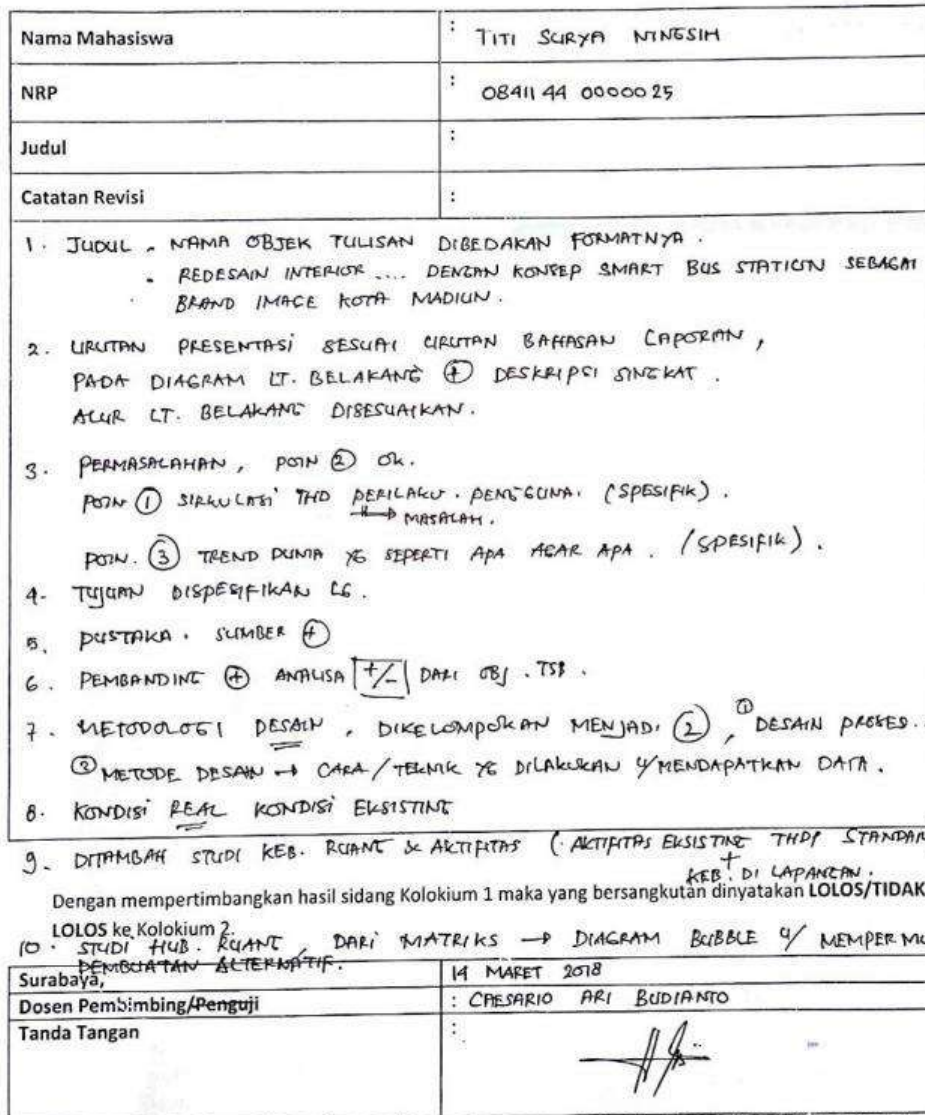 Nama Mahasiswa : TITI SURYA NINGSIH
NRP : 0841144 0000025
Judul :
Catatan Revisi :
1. JUDUL . NAMA OBJEK TULISAN DIBEDAKAN FORMATNYA .
. REDESAIN INTERIOR .... DENGAN KONSEP SMART BUS STATION SEBAGAI
BRAND IMAGE KOTA MADIUN .
2. URUTAN PRESENTASI SESUAI URUTAN BAHASAN LAPORAN ,
PADA DIAGRAM LT. BELAKANG ⊕ DESKRIPSI SINGKAT .
ALUR LT. BELAKANG DISESUAIKAN .
3. PERMASALAHAN , POIN ② OK.
POIN ① SIRKULASI THD PERILAKU . PENGGUNA . (SPESIFIK) .
→ MASALAH .
POIN . ③ TREND DUNIA YG SEPERTI APA AGAR APA . (SPESIFIK) .
4. TUJUAN DISPESIFIKAN LG .
5. PUSTAKA . SUMBER ⊕
6. PEMBANDING ⊕ ANALISA +/- DARI OBJ . TSB .
7. METODOLOGI DESAIN , DIKELOMPOKAN MENJADI ② , ① DESAIN PROSES .
② METODE DESAIN → CARA / TEKNIK YG DILAKUKAN U/ MENDAPATKAN DATA .
8. KONDISI REAL KONDISI EKSISTING
9. DITAMBAH STUDI KEB. RUANG & AKTIFITAS ( AKTIFITAS EKSISTING THDP STANDAR
+ KEB. DI LAPANGAN .
Dengan mempertimbangkan hasil sidang Kolokium 1 maka yang bersangkutan dinyatakan LOLOS/TIDAK
LOLOS ke Kolokium 2.
10. STUDI HUB. RUANG , DARI MATRIKS → DIAGRAM BUBBLE U/ MEMPERMU
PEMBUATAN ALTERNATIF .
Surabaya, 14 MARET 2018
Dosen Pembimbing/Penguji : CAESARIO ARI BUDIANTO
Tanda Tangan :